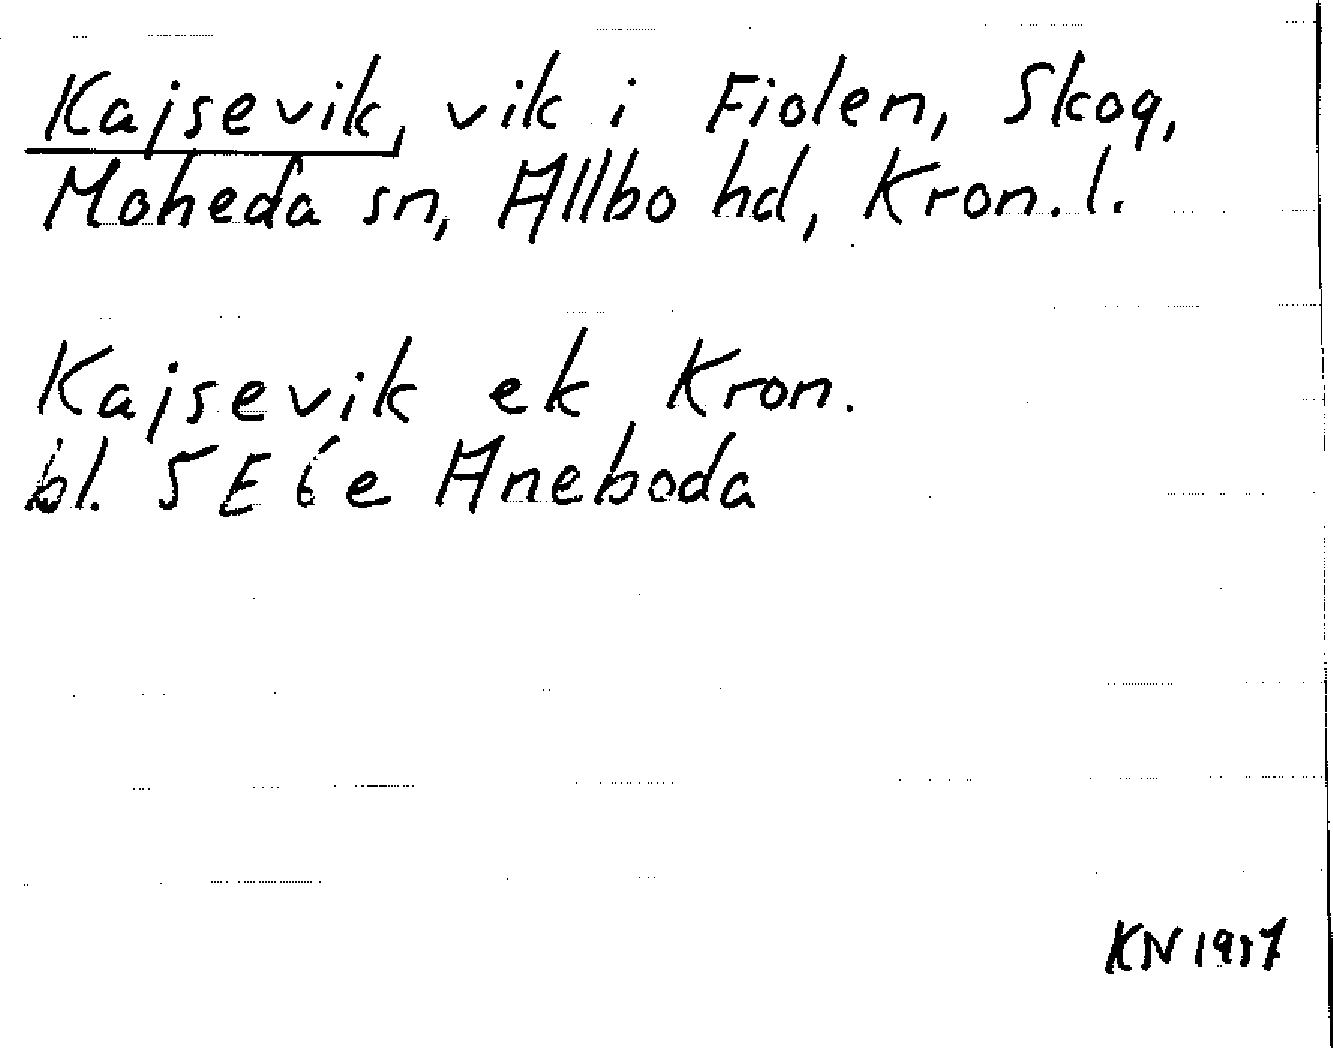 Kajsevik, vik i Fiolen, Skog,
Moheda sn, Allbo hd, Kron. l.
Kajsevik ek Kron.
bl. 5 E 6 e Aneboda
KN